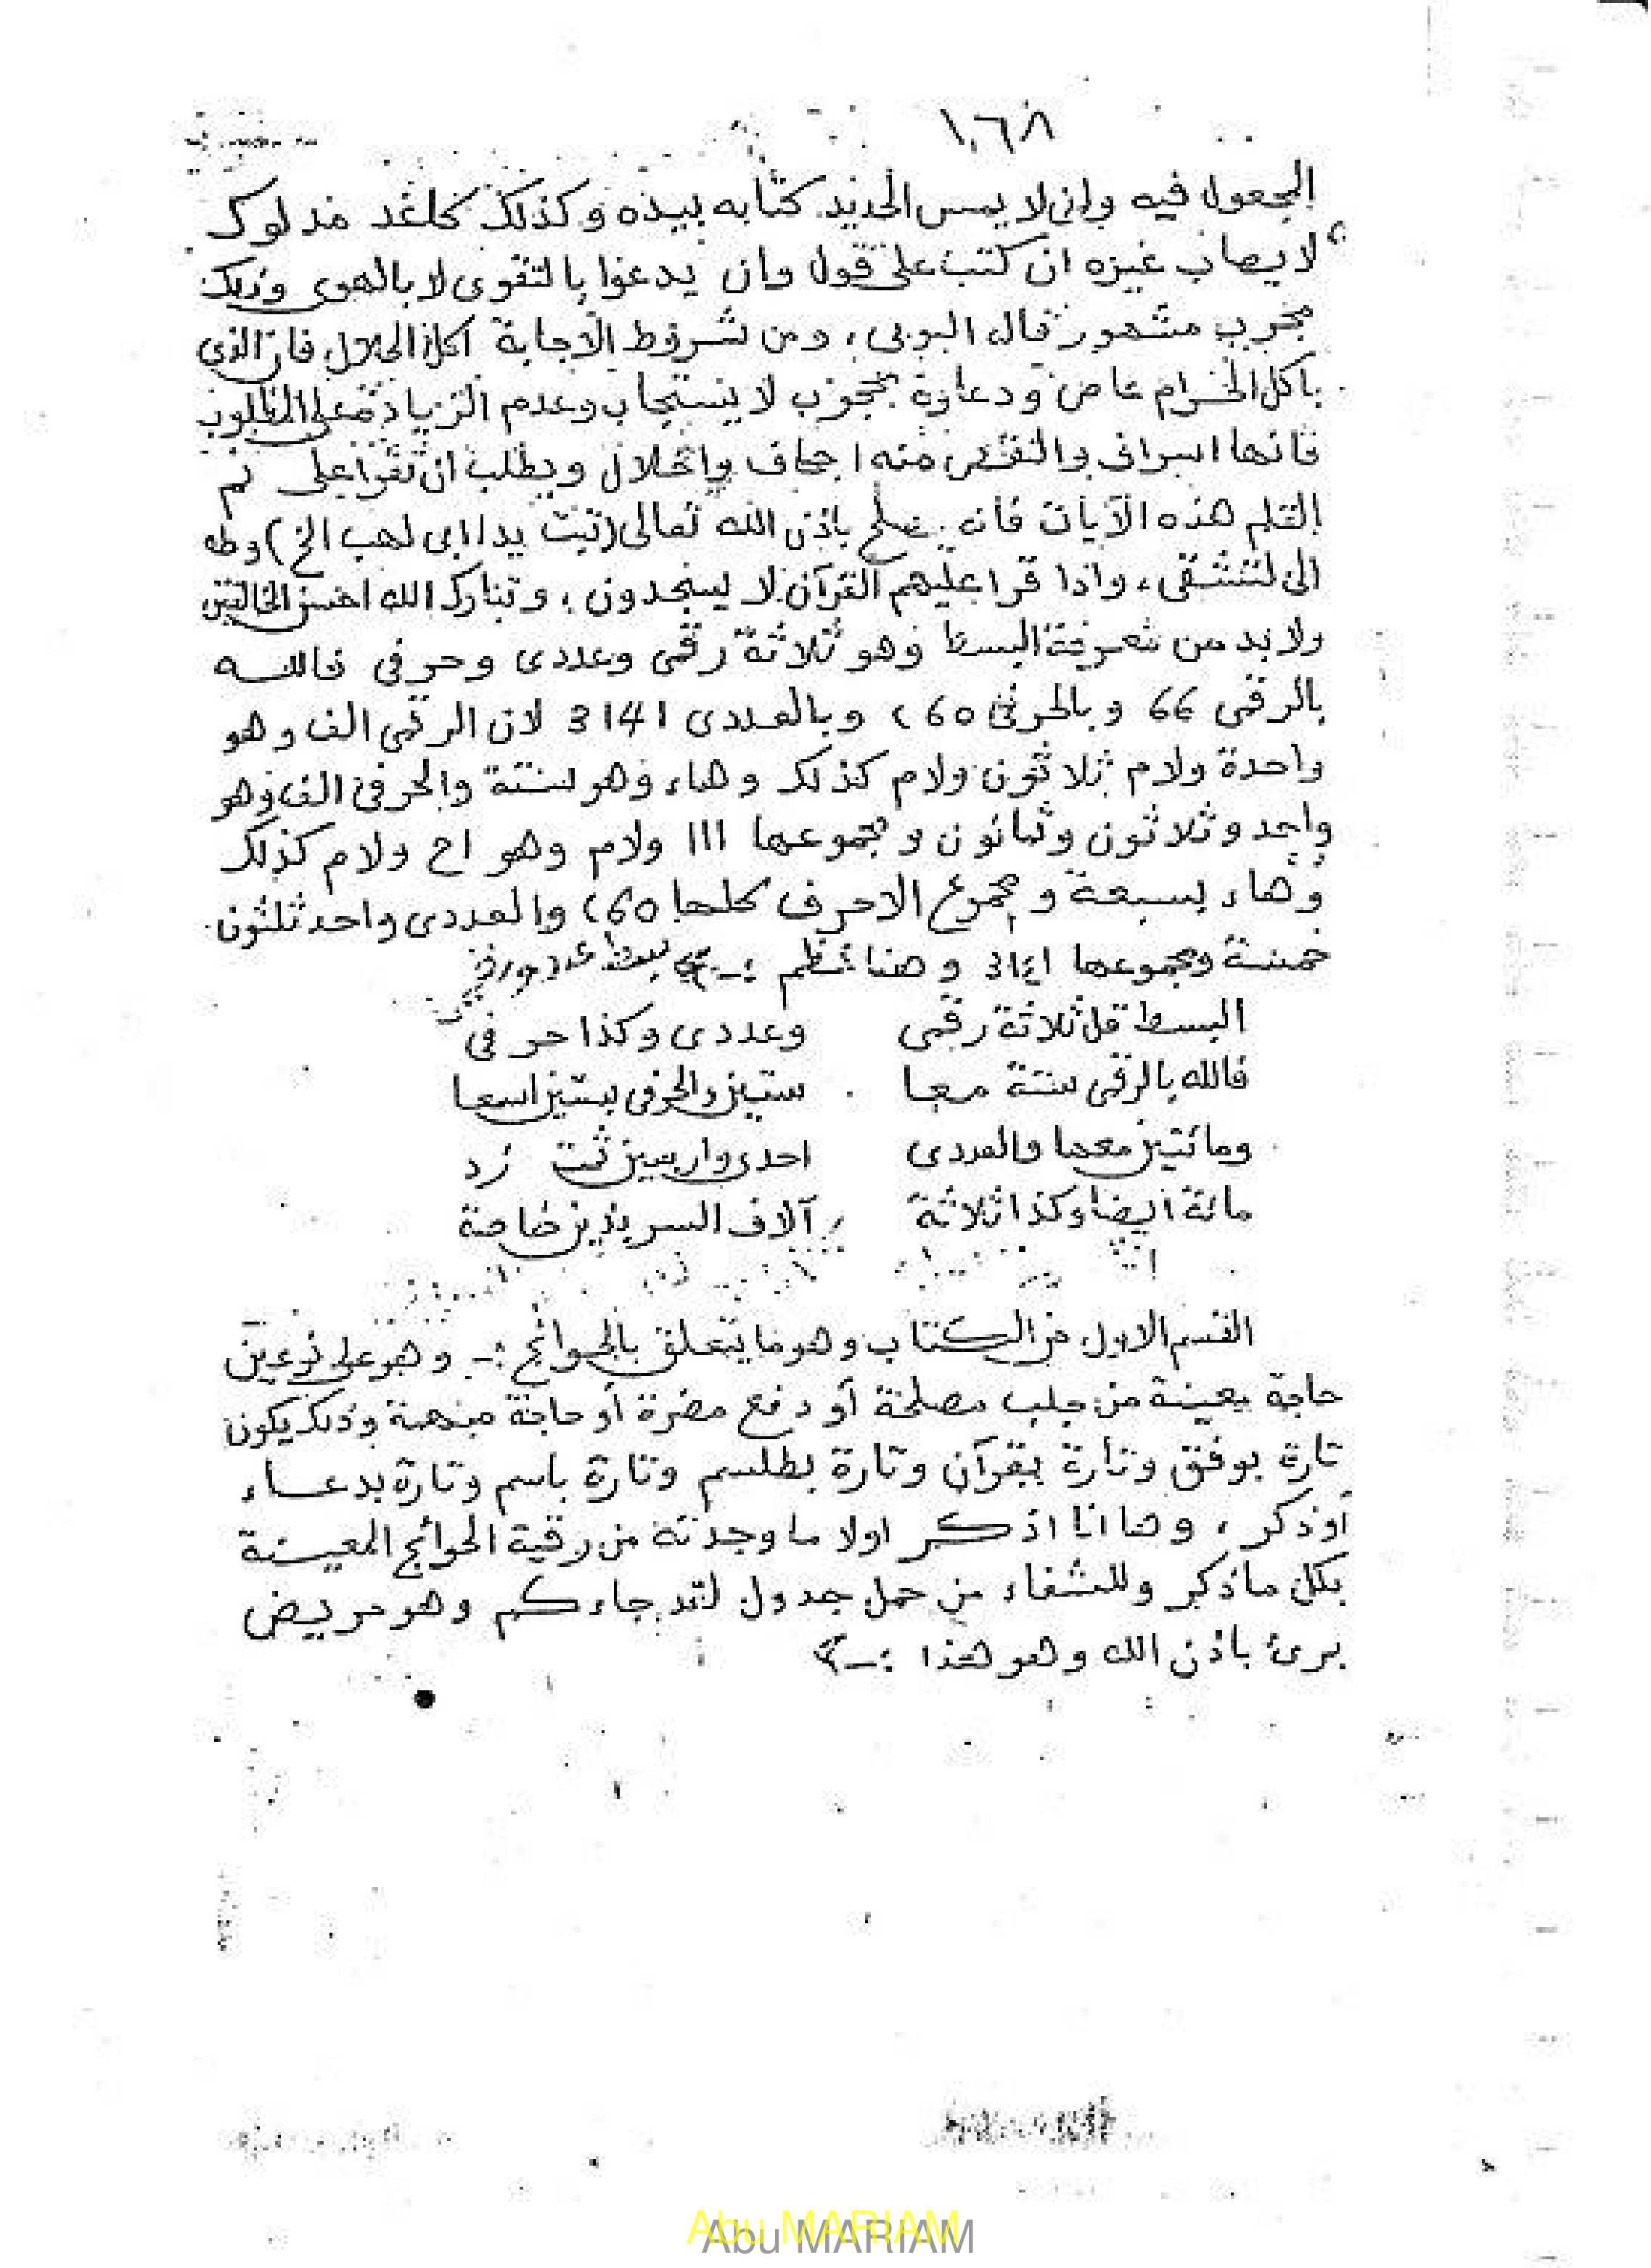 ١٦٨
المجعول فيه وان لا يمس الحديد كتابه بيده وكذلك كاغد مدلوك
لا يصاب غيره ان كتب على قول وان يدعوا بالتقوى لا بالهوى وذلك
مجرب مشهور قال البونى، ومن شروط الاجابة اكل الحلال فان الذى
ياكل الحرام عاص ودعاؤه محجوب لا يستجاب وعدم الزيادة على المطلوب
فانها اسراف والنقص منه اجحاف واخلال ويطلب ان تقرا على فم
القلم هذه الآيات فانه يصلح باذن الله تعالى (تبت يدا ابى لهب الخ) وطه
الى لتشقى، واذا قرا عليهم القرآن لا يسجدون، وتبارك الله احسن الخالقين
ولابد من معرفة البسط وهو ثلاثة رقمى وعددى وحرفى فالله
بالرقمى 66 وبالحرفى 260 وبالعددى 3141 لان الرقمى الف وهو
واحدة ولام ثلاثون ولام كذلك وهاء وهو ستة والحرفى الف وهو
واحد وثلاثون وثمانون ومجموعها 111 ولام وهو اح ولام كذلك
وهاء بسبعة ومجموع الاحرف كلها 260 والعددى واحد ثلثون
خمسة ومجموعها 3141 وهنا نظم :-
البسط قل ثلاثة رقمى وعددى وكذا حرفى
فالله بالرقمى ستة معا ستين والحرفى بستين اسمعا
ومائتين معها والعددى احدى واربعين ثمت زد
مائة ايضا وكذا ثلاثة آلاف السر بذين خاصة
القسم الاول من الكتاب وهو ما يتعلق بالحوائج :- وهو على نوعين
حاجة معينة من جلب مصلحة أو دفع مضرة أو حاجة مبهمة وذلك يكون
تارة بوفق وتارة بقرآن وتارة بطلسم وتارة باسم وتارة بدعاء
أوذكر، وها انا اذكر اولا ما وجدته من رقية الحوائج المعينة
بكل ما ذكر وللشفاء من حمل جدول لقد جاءكم وهو مريض
برئ باذن الله وهو هذا :-
Abu MARIAM
Abu MARIAM